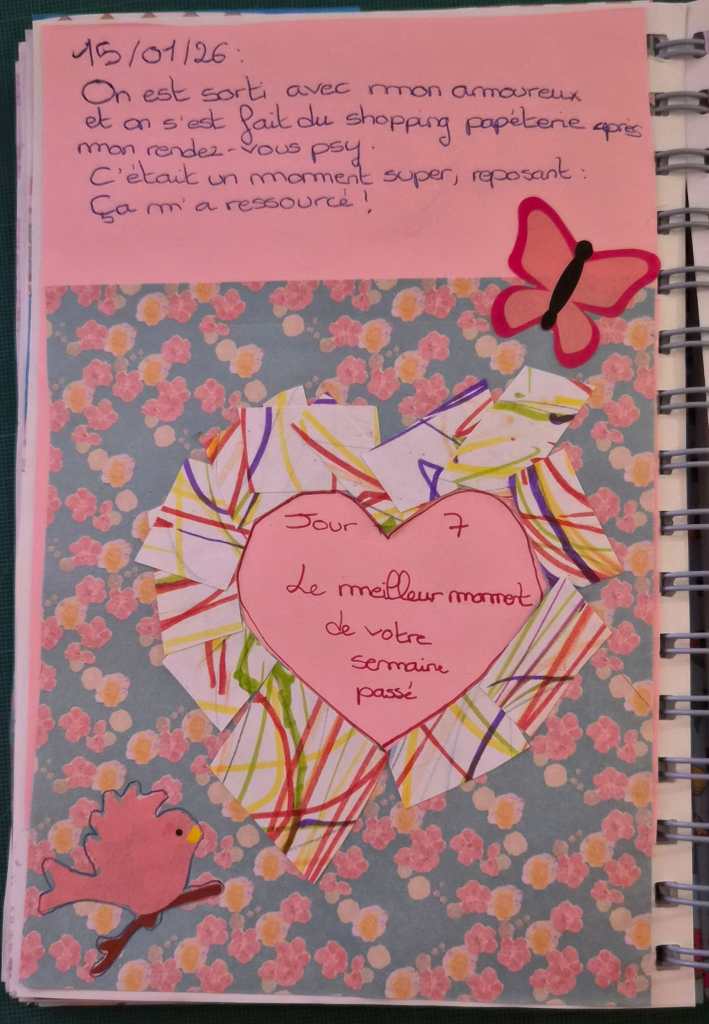 15/01/26:
On est sorti avec mon amoureux
et on s'est fait du shopping papéterie après
mon rendez-vous psy.
C'était un moment super, reposant :
Ça m'a ressourcé !
Jour 7
Le meilleur moment
de votre
semaine
passé